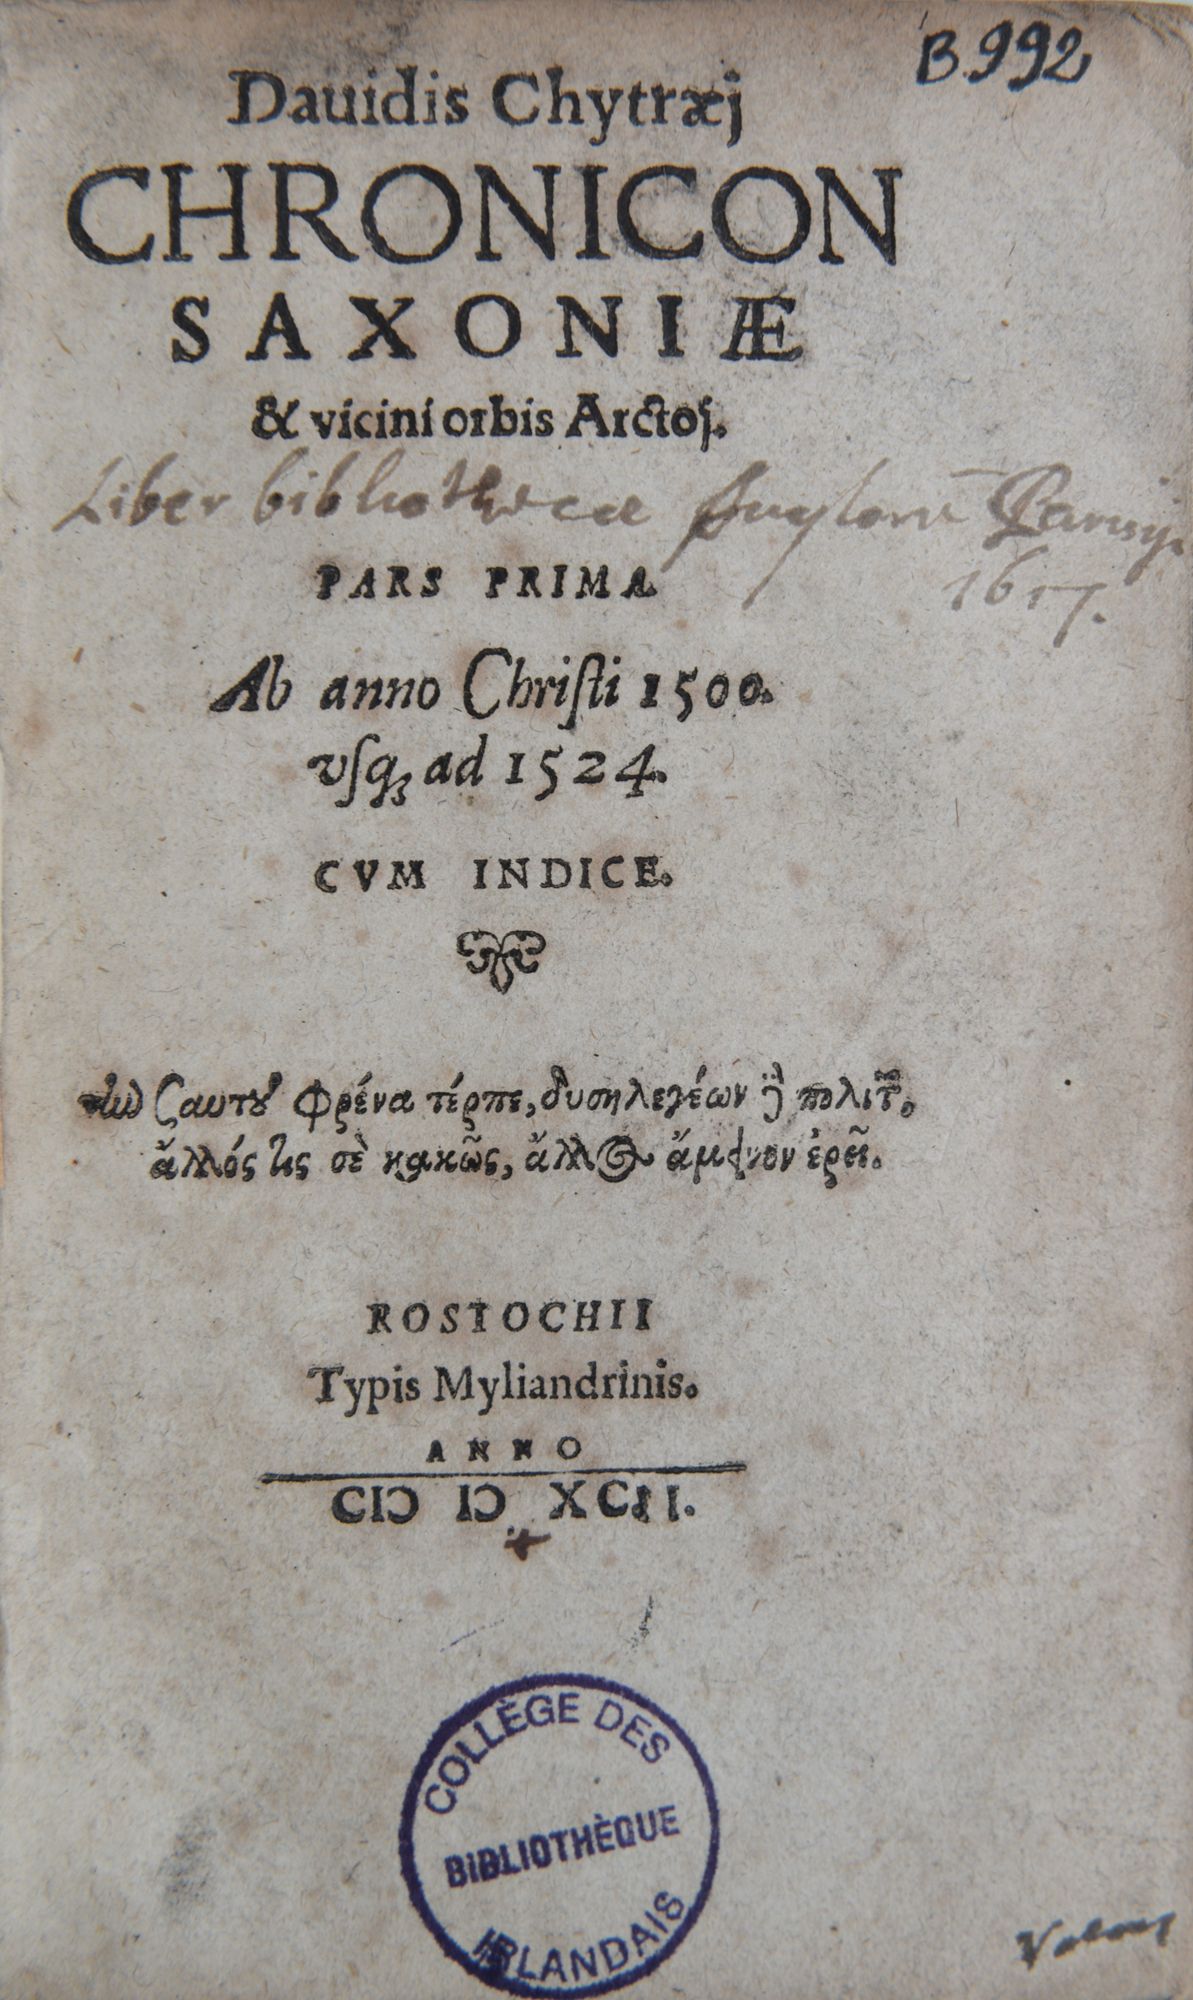 B 992
Dauidis Chytræj
CHRONICON
SAXONIÆ
& vicini orbis Arctoj.
Liber bibliothecæ Anglorū Parisij.
1617.
PARS PRIMA
Ab anno Chriſti 1500.
vſq; ad 1524.
CVM INDICE.
ςαυτȣ φρένα τέρπε, δυσηλεγέων ϳ πολιτ.
ἄλλός τις σὲ κακῶς, ἄλλος ἄμεινον ἐρεῖ.
ROSTOCHII
Typis Myliandrinis.
ANNO
CIƆ IƆ XCIII.
COLLÈGE DES
BIBLIOTHÈQUE
IRLANDAIS